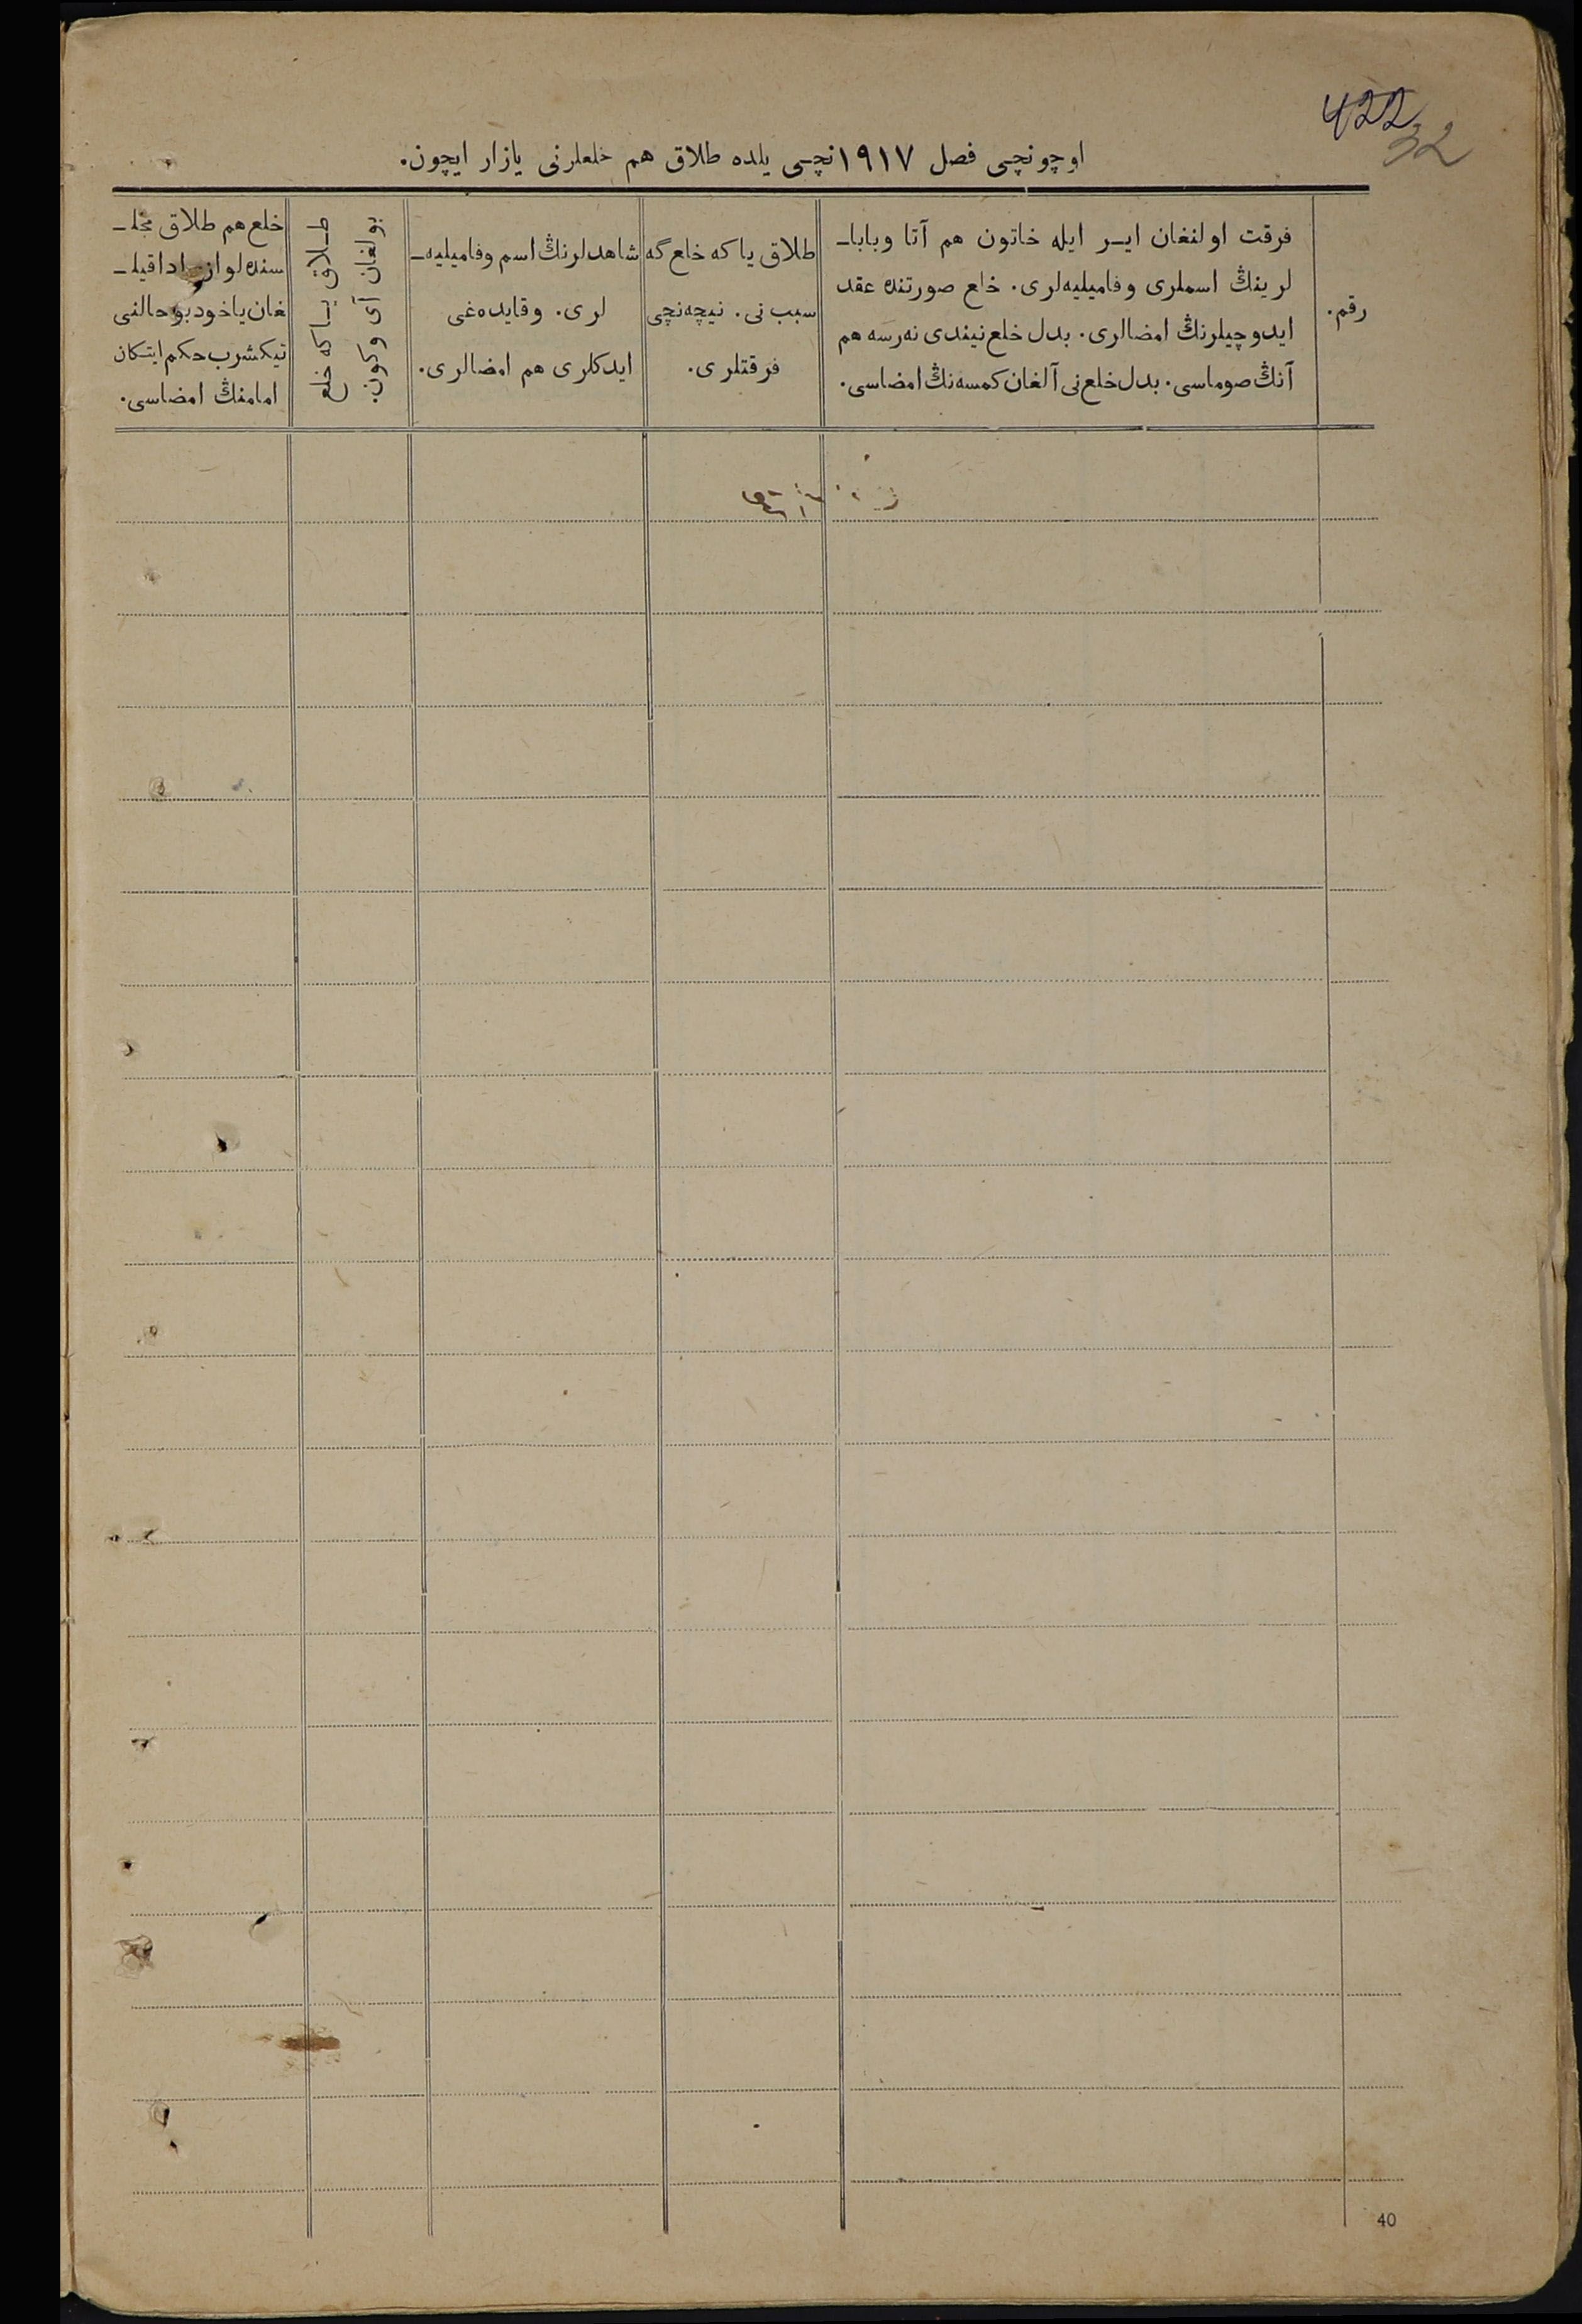 422
32
اوچونچی فصل ١٩١٧نچی یلده طلاق هم خلعلرنی یازار ایچون.
رقم.
فرقت اولنغان ایـر ایله خاتون هم آتا وبابا‌ـ
لرینڭ اسملری وفامیلیه‌لری. خلع صورتنده عقد
ایدوچیلرنڭ امضالری. بدل خلع نیندی نه‌رسه هم
آنڭ صوماسی. بدل خلع نی آلغان کمسه‌نڭ امضاسی.
طلاق یا که خلع گه
سبب نی. نیچه‌نچی
فرقتلری.
شاهدلرنڭ اسم وفامیلیه‌ـ
لری. وقایده‌غی
ایدکلری هم امضالری.
طـلاق یـا که خلع
بولغان آی وکون.
خلع هم طلاق مجلـ
سنده لوازم ادا قیلـ
غان یاخود بو حالنی
تیکشرب حکم ایتـکان
امامنڭ امضاسی.
40